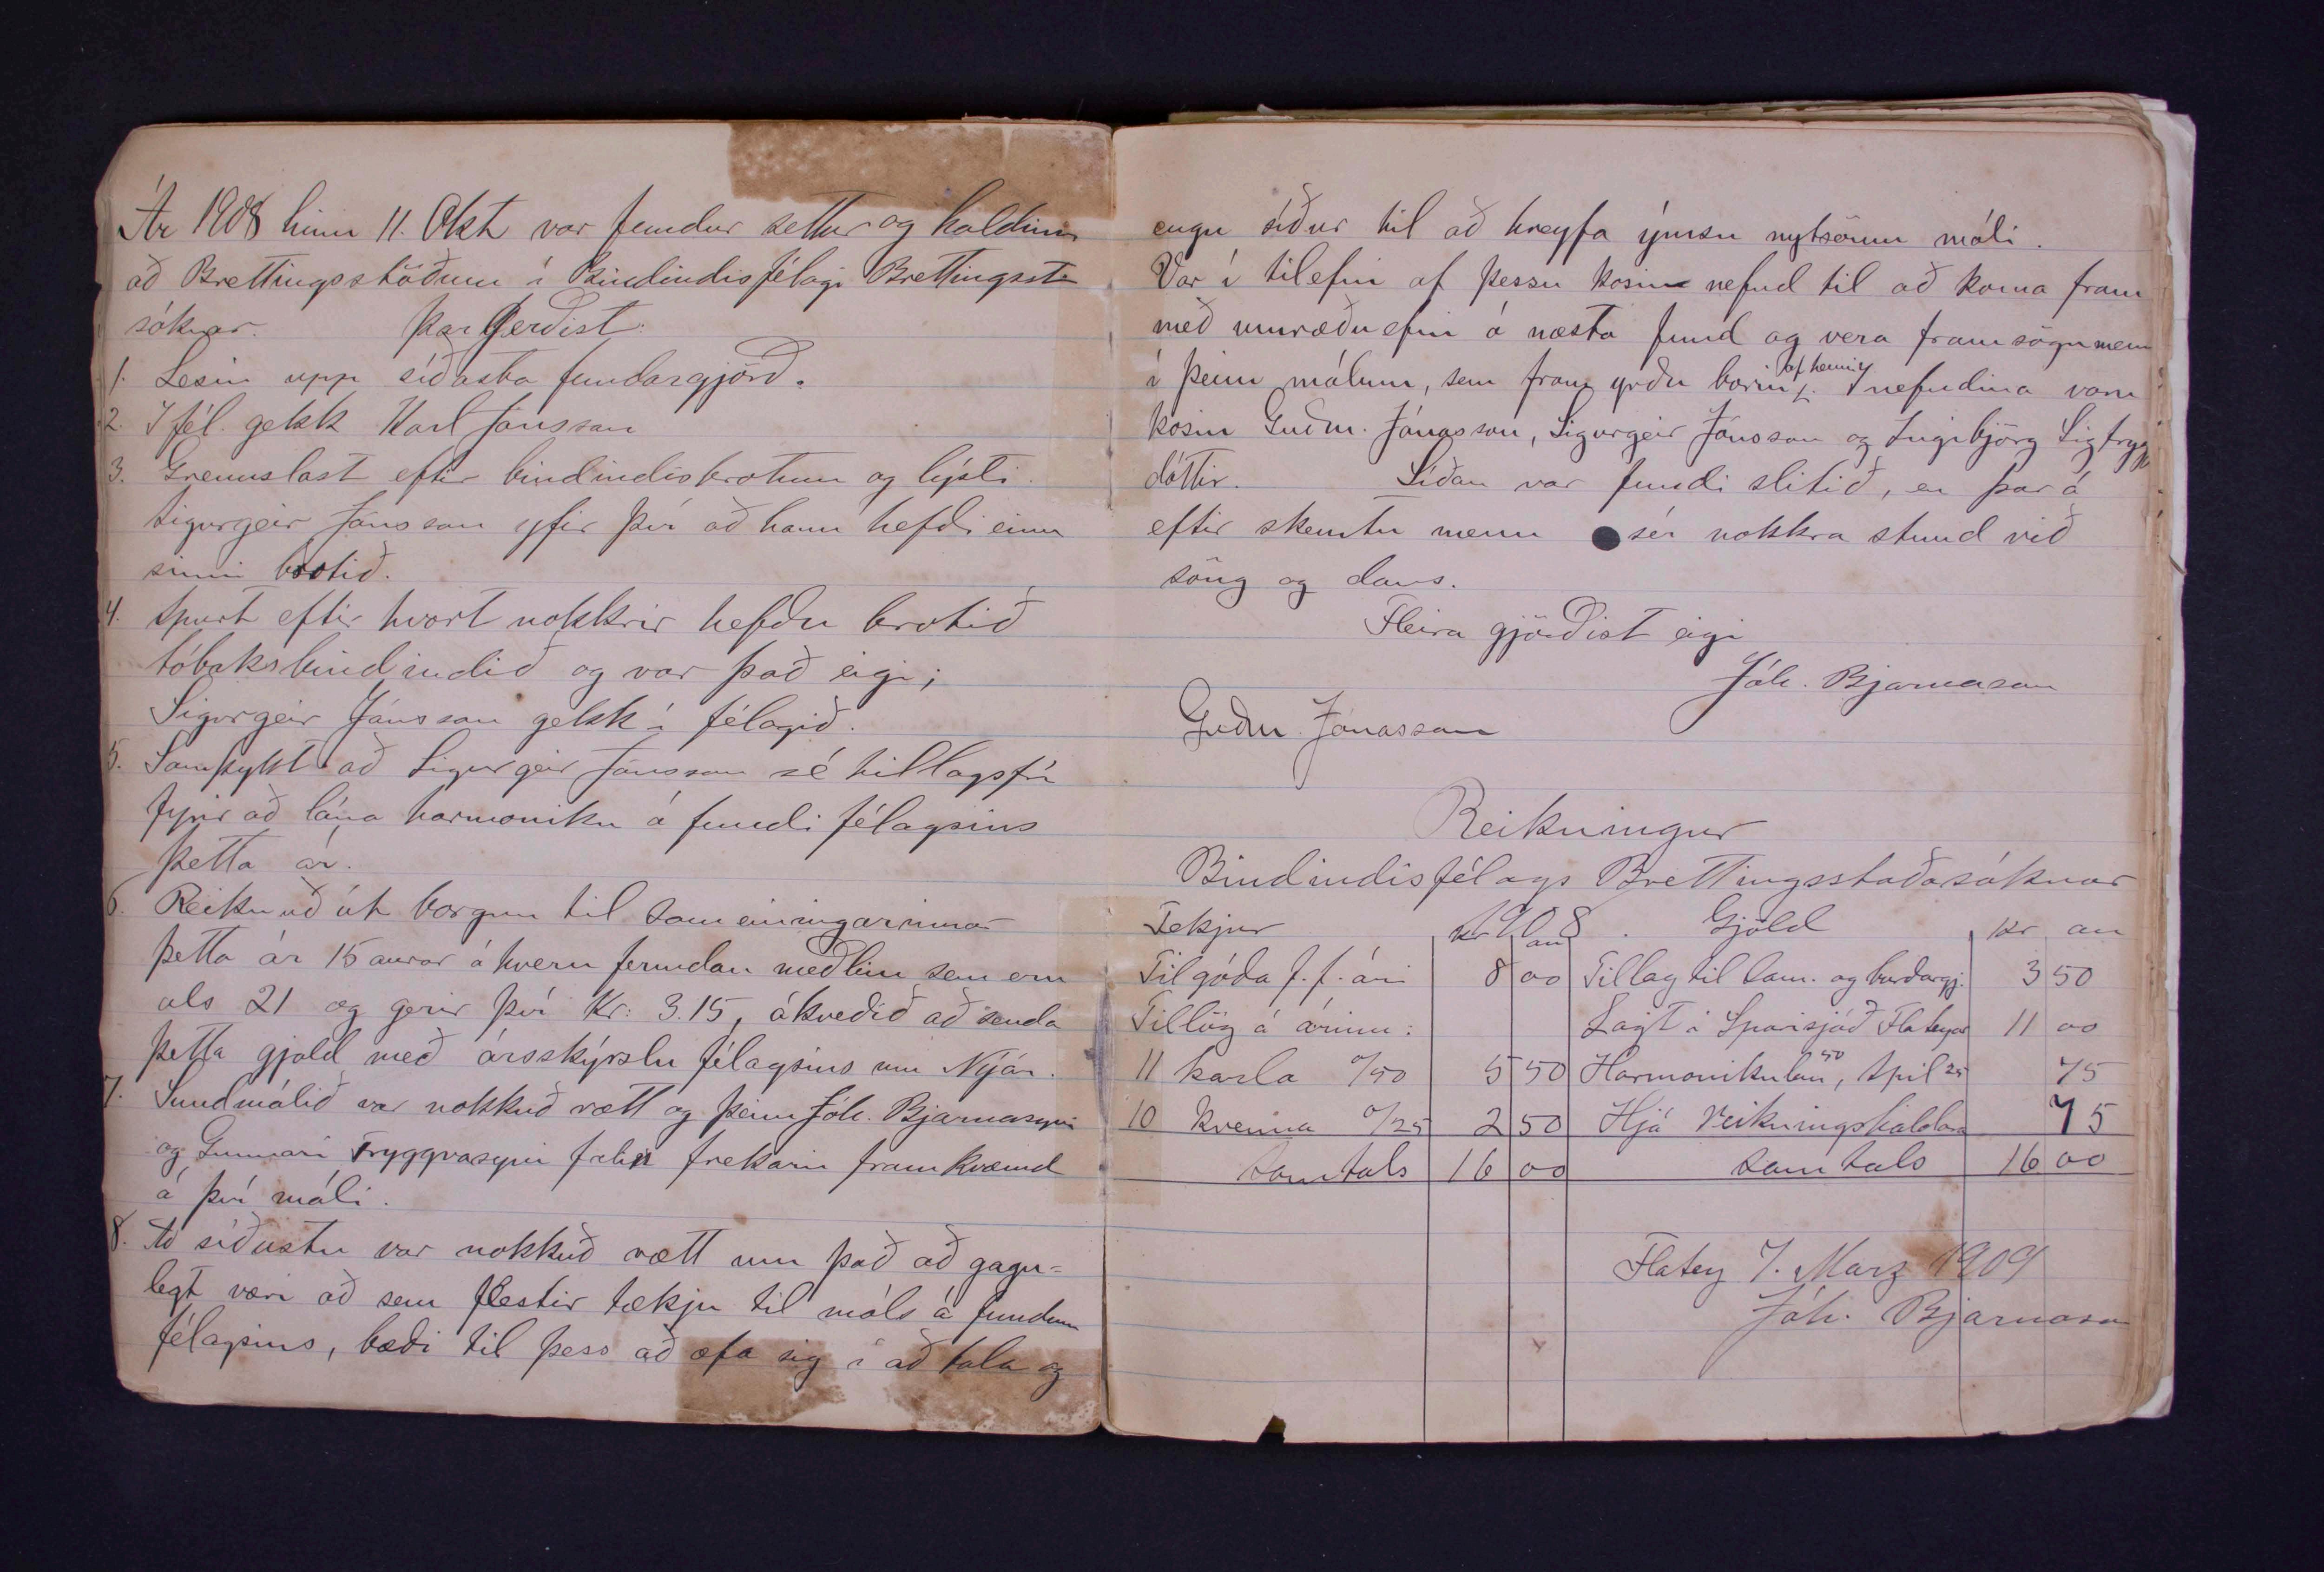 Ár 1908 hinn 11. Okt var fundur settur og haldinn
að Brettingsstöðum í Bindindisfélagi Brettingsst-
sóknar. Þar Gerðist:
1. Lesin upp síðasta fundargjörð.
2. Í fél. gekk Karl Jónsson
3. Grenslast eftir bindindisbrotum og lýsti
Sigurgeir Jónsson yfir því að hann hefði einu
sinni brotið.
4. Spurt eftir hvort nokkrir hefðu brotið
tóbaksbindindið og var það eigi;
Sigurgeir Jónsson gekk í félagið.
5. Samþykt að Sigurgeir Jónsson sé tillagsfrí
fyrir að lána harmoniku á fundi félagsins
þetta ár.
6. Reiknuð út borgun til sameiningarinnar
þetta ár 15 aurar á hvern fermdan meðlim sem eru
als 21 og gerir því Kr: 3.15, ákveðið að senda
þetta gjald með ársskýrslu félagsins um Nýár.
7. Sundmálið var nokkuð rætt og þeim Jóh. Bjarnasyni
og Gunnari Tryggvasyni falin frekari framkvæmd
á því máli.
8. Að síðustu var nokkuð rætt um það að gagn-
legt væri að sem flestir tækju til máls á fundum
félagsins, bæði til þess að æfa sig í að tala og
engu síður til að hreyfa ýmsu nytsömu máli.
Var í tilefni af þessu kosin nefnd til að koma fram
með umræðuefni á næsta fund og vera framsögumenn
í þeim málum, sem fram yrðu borin af henni. Í nefndina voru
kosin Guðm. Jónasson, Sigurgeir Jónsson og Ingibjörg Sigtrygg
dóttir. Síðan var fundi slitið, en þar á
eftir skemtu menn sér nokkra stund við
söng og dans.
Fleira gjörðist eigi
Jóh. Bjarnason
Guðm. Jónasson
Reikningur
Bindindisfélags Brettingsstaðasóknar
1908.
Tekjur kr au Gjöld kr au
Til góða f. f. ári 8 00 Tillag til Sam. og burðargj. 3 50
Tillög á árinu: Lagt í Sparisjóð Flateyar 11 00
11 karla 0/50 5 50 Harmonikulán 50, Spil 25 75
10 kvenna 0/25 2 50 Hjá reikningshaldara 75
Samtals 16 00 Samtals 16 00
Flatey 7. Marz 1909
Jóh. Bjarnason